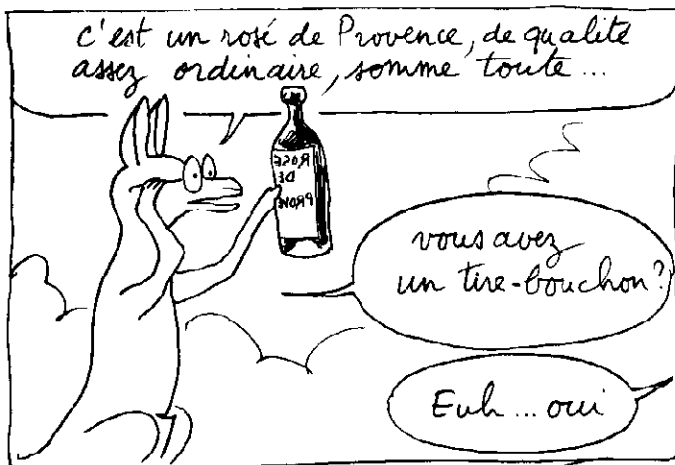 c'est un rosé de Provence, de qualité
assez ordinaire, somme toute ...
ROSE
DE
PROVE
vous avez
un tire-bouchon?
Euh ... oui